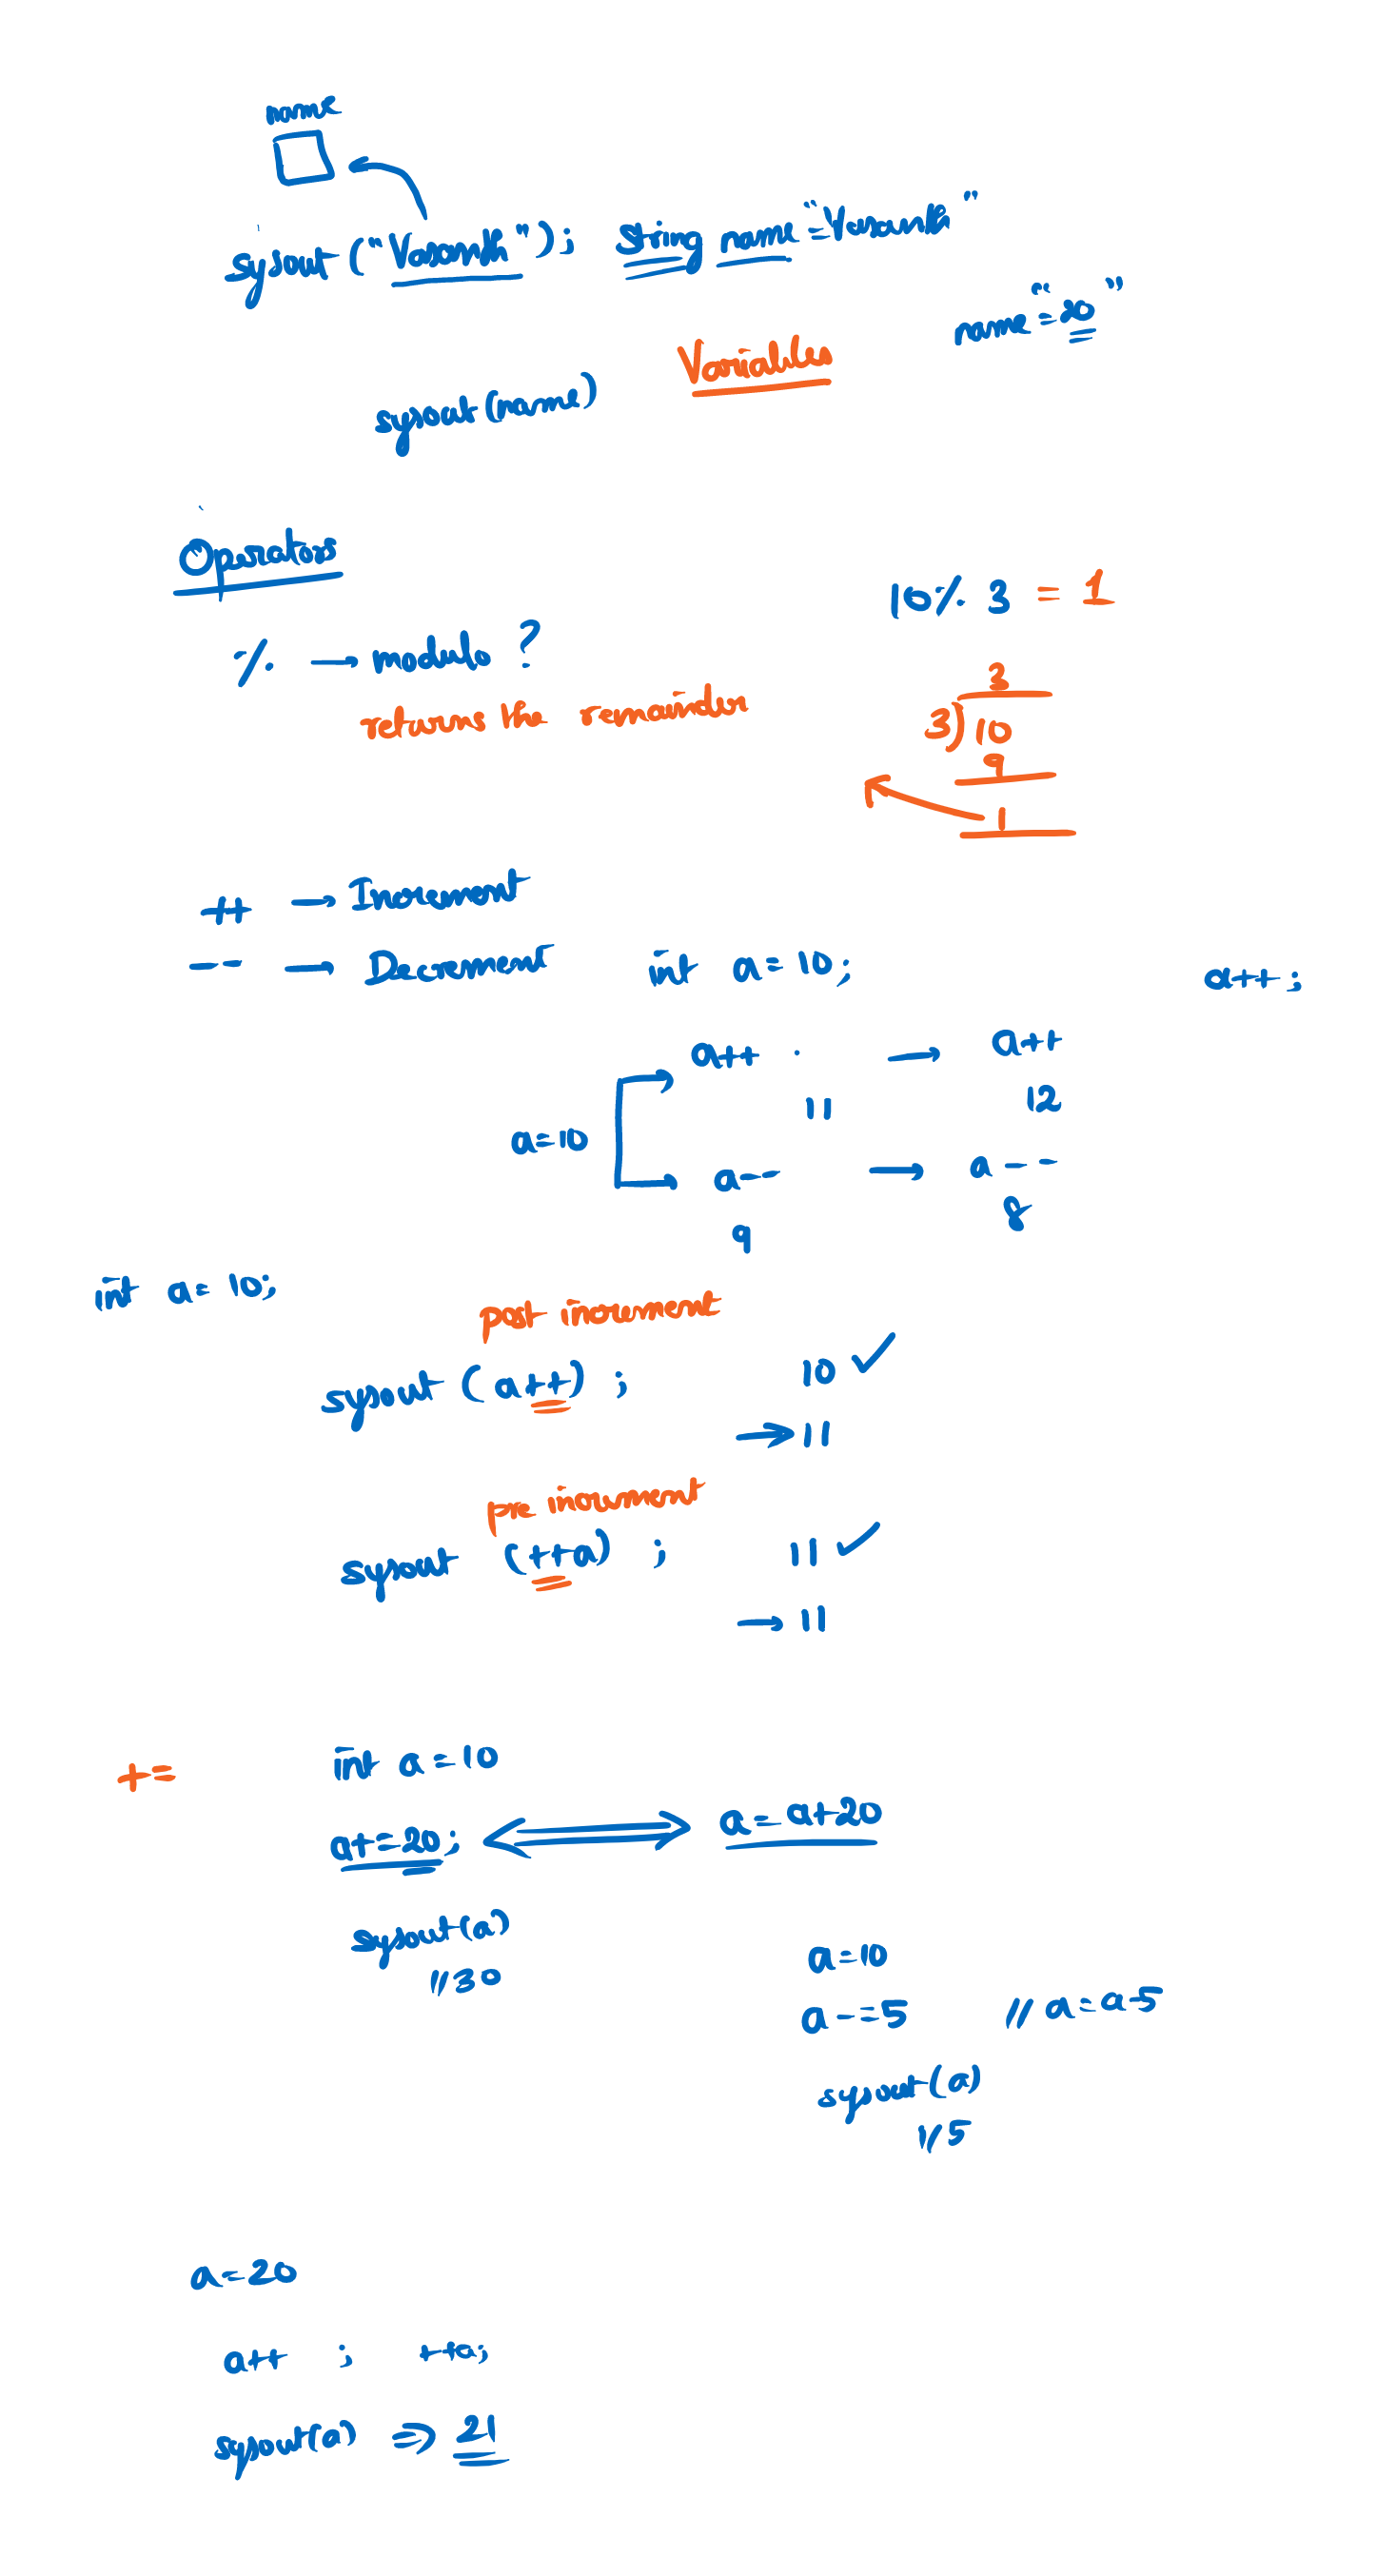 name
sysout ("Vasanth"); String name = "Vasanth"
name = "20"
Variables
sysout (name)
Operators
10 % 3 = 1
% → modulo ?
returns the remainder
3
3) 10
9
1
++ → Increment
-- → Decrement int a = 10; a++;
a++ → a++
11 12
a=10
a-- → a--
9 8
int a = 10;
post increment
sysout (a++) ; 10 ✓
→ 11
pre increment
sysout (++a) ; 11 ✓
→ 11
+= int a = 10
a+=20; ⟺ a = a+20
sysout(a)
//30
a=10
a-=5 // a=a-5
sysout(a)
//5
a=20
a++ ; ++a;
sysout(a) ⇒ 21